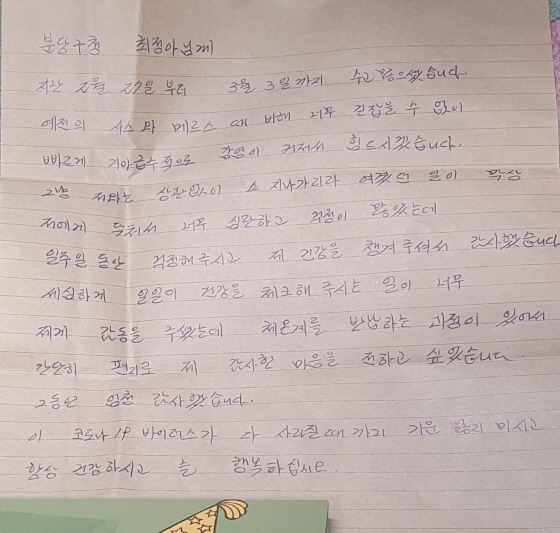 분당구청 최정아님께
지난 2월 27일 부터 3월 3일까지 수고 많으셨습니다.
예전의 사스와 메르스 때 비해 너무 걷잡을 수 없이
빠르게 기하급수적으로 감염이 커져서 힘드시겠습니다.
그냥 저와는 상관없이 쇼 지나가리라 여겼던 일이 막상
저에게 닥쳐서 너무 심란하고 걱정이 많았는데
일주일 동안 걱정해주시고 제 건강을 챙겨주셔서 감사했습니다
세심하게 일일이 건강을 체크해 주시는 일이 너무
제게 감동을 주셨는데 체온계를 반납하는 과정이 있어서
간단히 편지로 제 감사한 마음을 전하고 싶었습니다.
그동안 엄청 감사했습니다.
이 코로나19 바이러스가 다 사라질때까지 기운 미시고
항상 건강하시고 늘 행복하십시요.